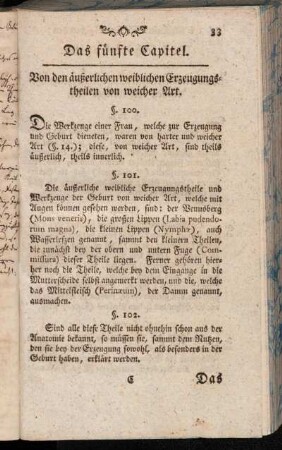 33
Das fünfte Capitel.
Von den äußerlichen weiblichen Erzeugungs-
theilen von weicher Art.
§. 100.
Die Werkzenge einer Frau, welche zur Erzeugung
und Geburt dieneten, waren von harter und weicher
Art (§. 14.); diese, von weicher Art, sind theils
äußerlich, theils innerlich.
§. 101.
Die äußerliche weibliche Erzeugungstheile und
Werkzeuge der Geburt von weicher Art, welche mit
Augen können gesehen werden, sind: der Venusberg
(Mons veneris), die großen Lippen (Labia pudendo-
rum magna), die kleinen Lippen (Nymphæ), auch
Wasserlefzen genannt, sammt den kleinern Theilen,
die zunächst bey der obern und untern Fuge (Com-
missura) dieser Theile liegen. Ferner gehören hier-
her noch die Theile, welche bey dem Eingange in die
Mutterscheide selbst angemerkt werden, und die, welche
das Mittelfleisch (Perinæum), der Damm genannt,
ausmachen.
§. 102.
Sind alle diese Theile nicht ohnehin schon aus der
Anatomie bekannt, so müssen sie, sammt dem Nutzen,
den sie bey der Erzeugung sowohl, als besonders in der
Geburt haben, erklärt werden.
C Das